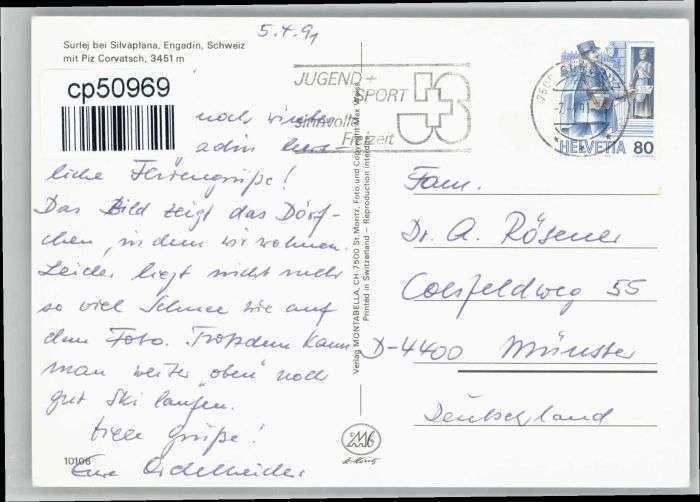 Surlej bei Silvaplana, Engadin, Schweiz
mit Piz Corvatsch, 3451 m
5.4.91
cp50969
noch
liche Feriengrüße!
Das Bild zeigt das Dörf-
chen, in dem wir wohnen.
Leider liegt nicht mehr
so viel Schnee wie auf
dem Foto. Trotzdem kann
man weiter "oben" noch
gut Ski laufen.
Viele Grüße!
Eure
10106
Verlag MONTABELLA, CH-7500 St. Moritz, Foto und Copyright Max Weiss
Printed in Switzerland – Reproduction interdite
JUGEND +
SPORT
sinnvolle
Freizeit
7500
HELVETIA 80
Fam.
Dr. A. Rösener
Coesfeldweg 55
D-4400 Münster
Deutschland